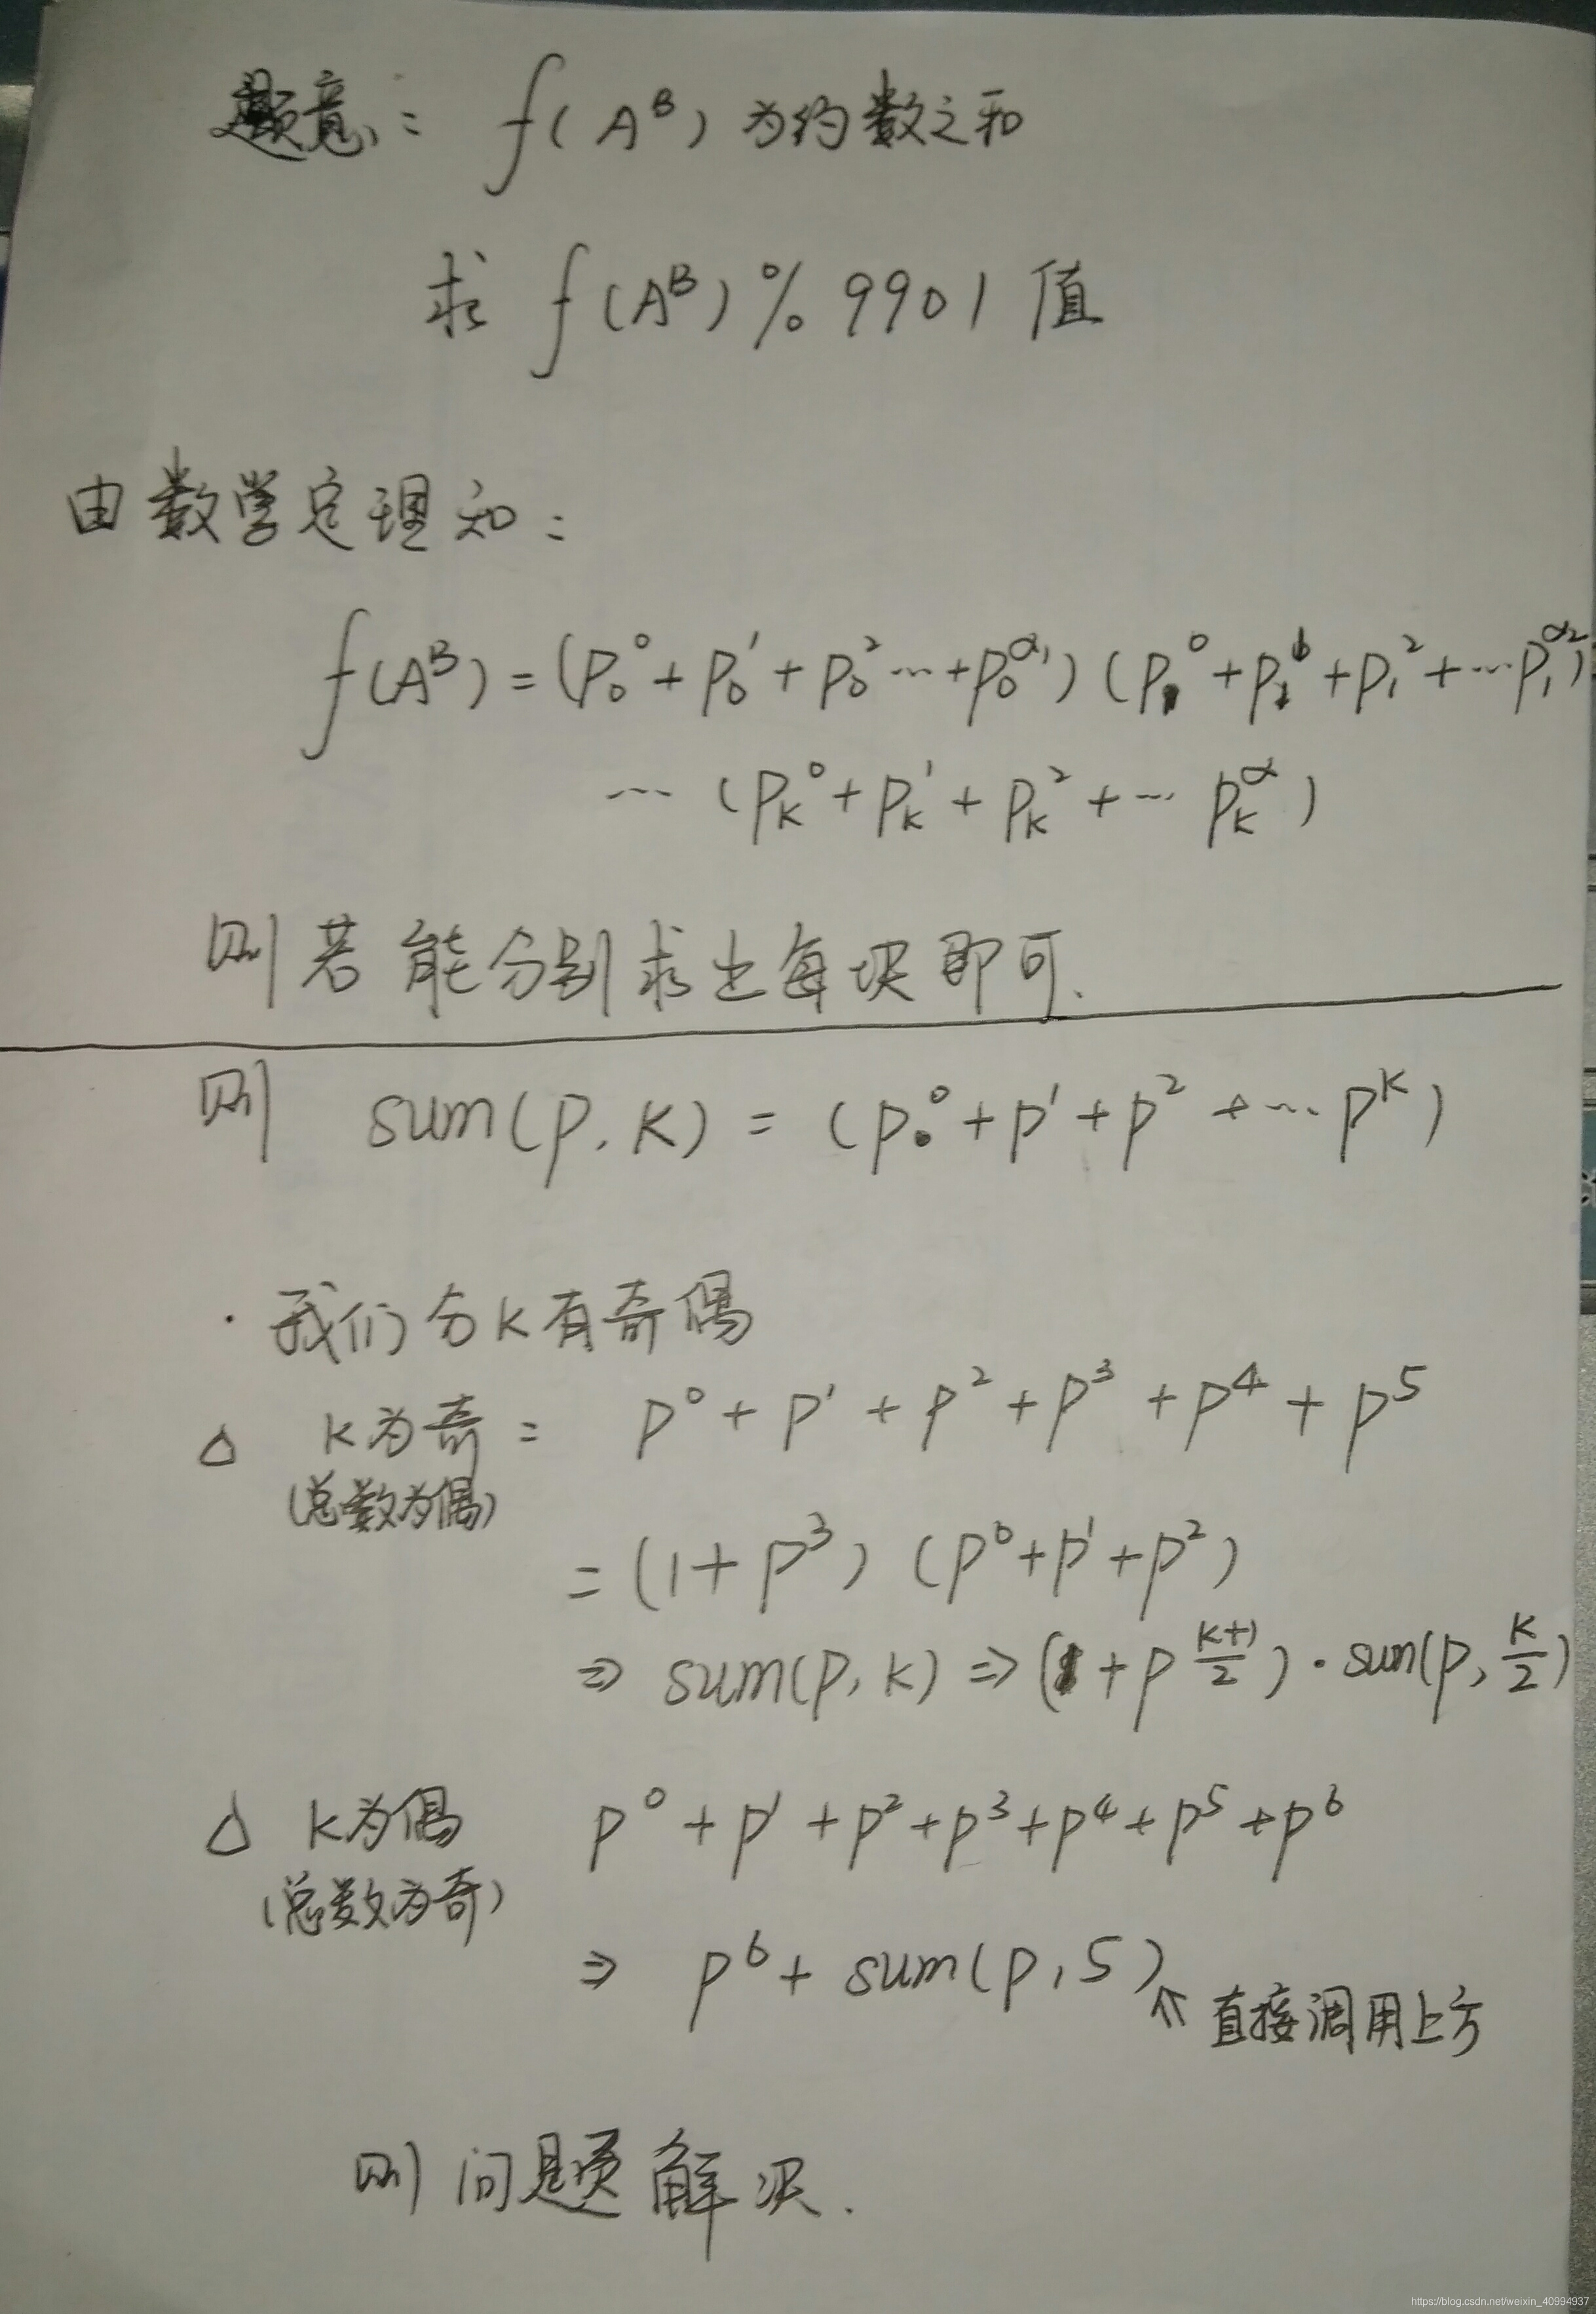 题意：f(A^B) 为约数之和
求 f(A^B) % 9901 值
由数学定理知：
f(A^B) = (p₀⁰ + p₀¹ + p₀² ··· + p₀^α₁) (p₁⁰ + p₁¹ + p₁² + ··· p₁^α₂)
··· (p_k⁰ + p_k¹ + p_k² + ··· p_k^α)
则若能分别求出每块即可.
则 sum(p, k) = (p⁰ + p¹ + p² + ··· p^k)
· 我们分k有奇偶
△ k为奇： p⁰ + p¹ + p² + p³ + p⁴ + p⁵
(总数为偶)
= (1 + p³) (p⁰ + p¹ + p²)
⇒ sum(p, k) ⇒ (1 + p^(k+1)/2) · sum(p, k/2)
△ k为偶 p⁰ + p¹ + p² + p³ + p⁴ + p⁵ + p⁶
(总数为奇)
⇒ p⁶ + sum(p, 5) ↑ 直接调用上方
则问题解决.
https://blog.csdn.net/weixin_40994937